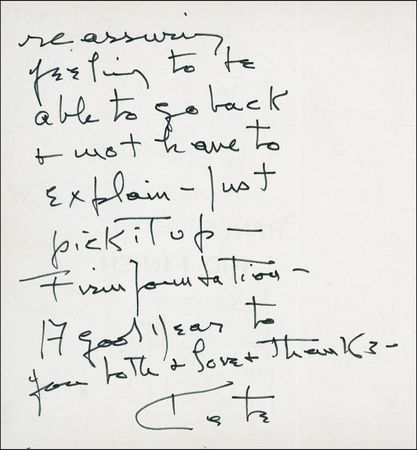 reassuring
feeling to be
able to go back
+ not have to
explain – just
pick it up –
Firm foundation –
A good year to
you both + love + thanks –
Kate